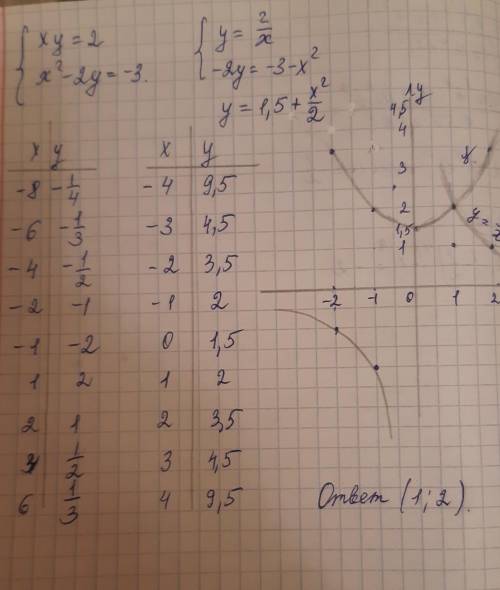 { xy = 2
{ x² - 2y = -3.
{ y = 2/x
{ -2y = -3 - x²
y = 1,5 + x²/2
x y
-8 -1/4
-6 -1/3
-4 -1/2
-2 -1
-1 -2
1 2
2 1
4 1/2
6 1/3
x y
-4 9,5
-3 4,5
-2 3,5
-1 2
0 1,5
1 2
2 3,5
3 4,5
4 9,5
y
4,5
4
3
2
1,5
1
-2 -1 0 1 2
y =
Ответ (1; 2).